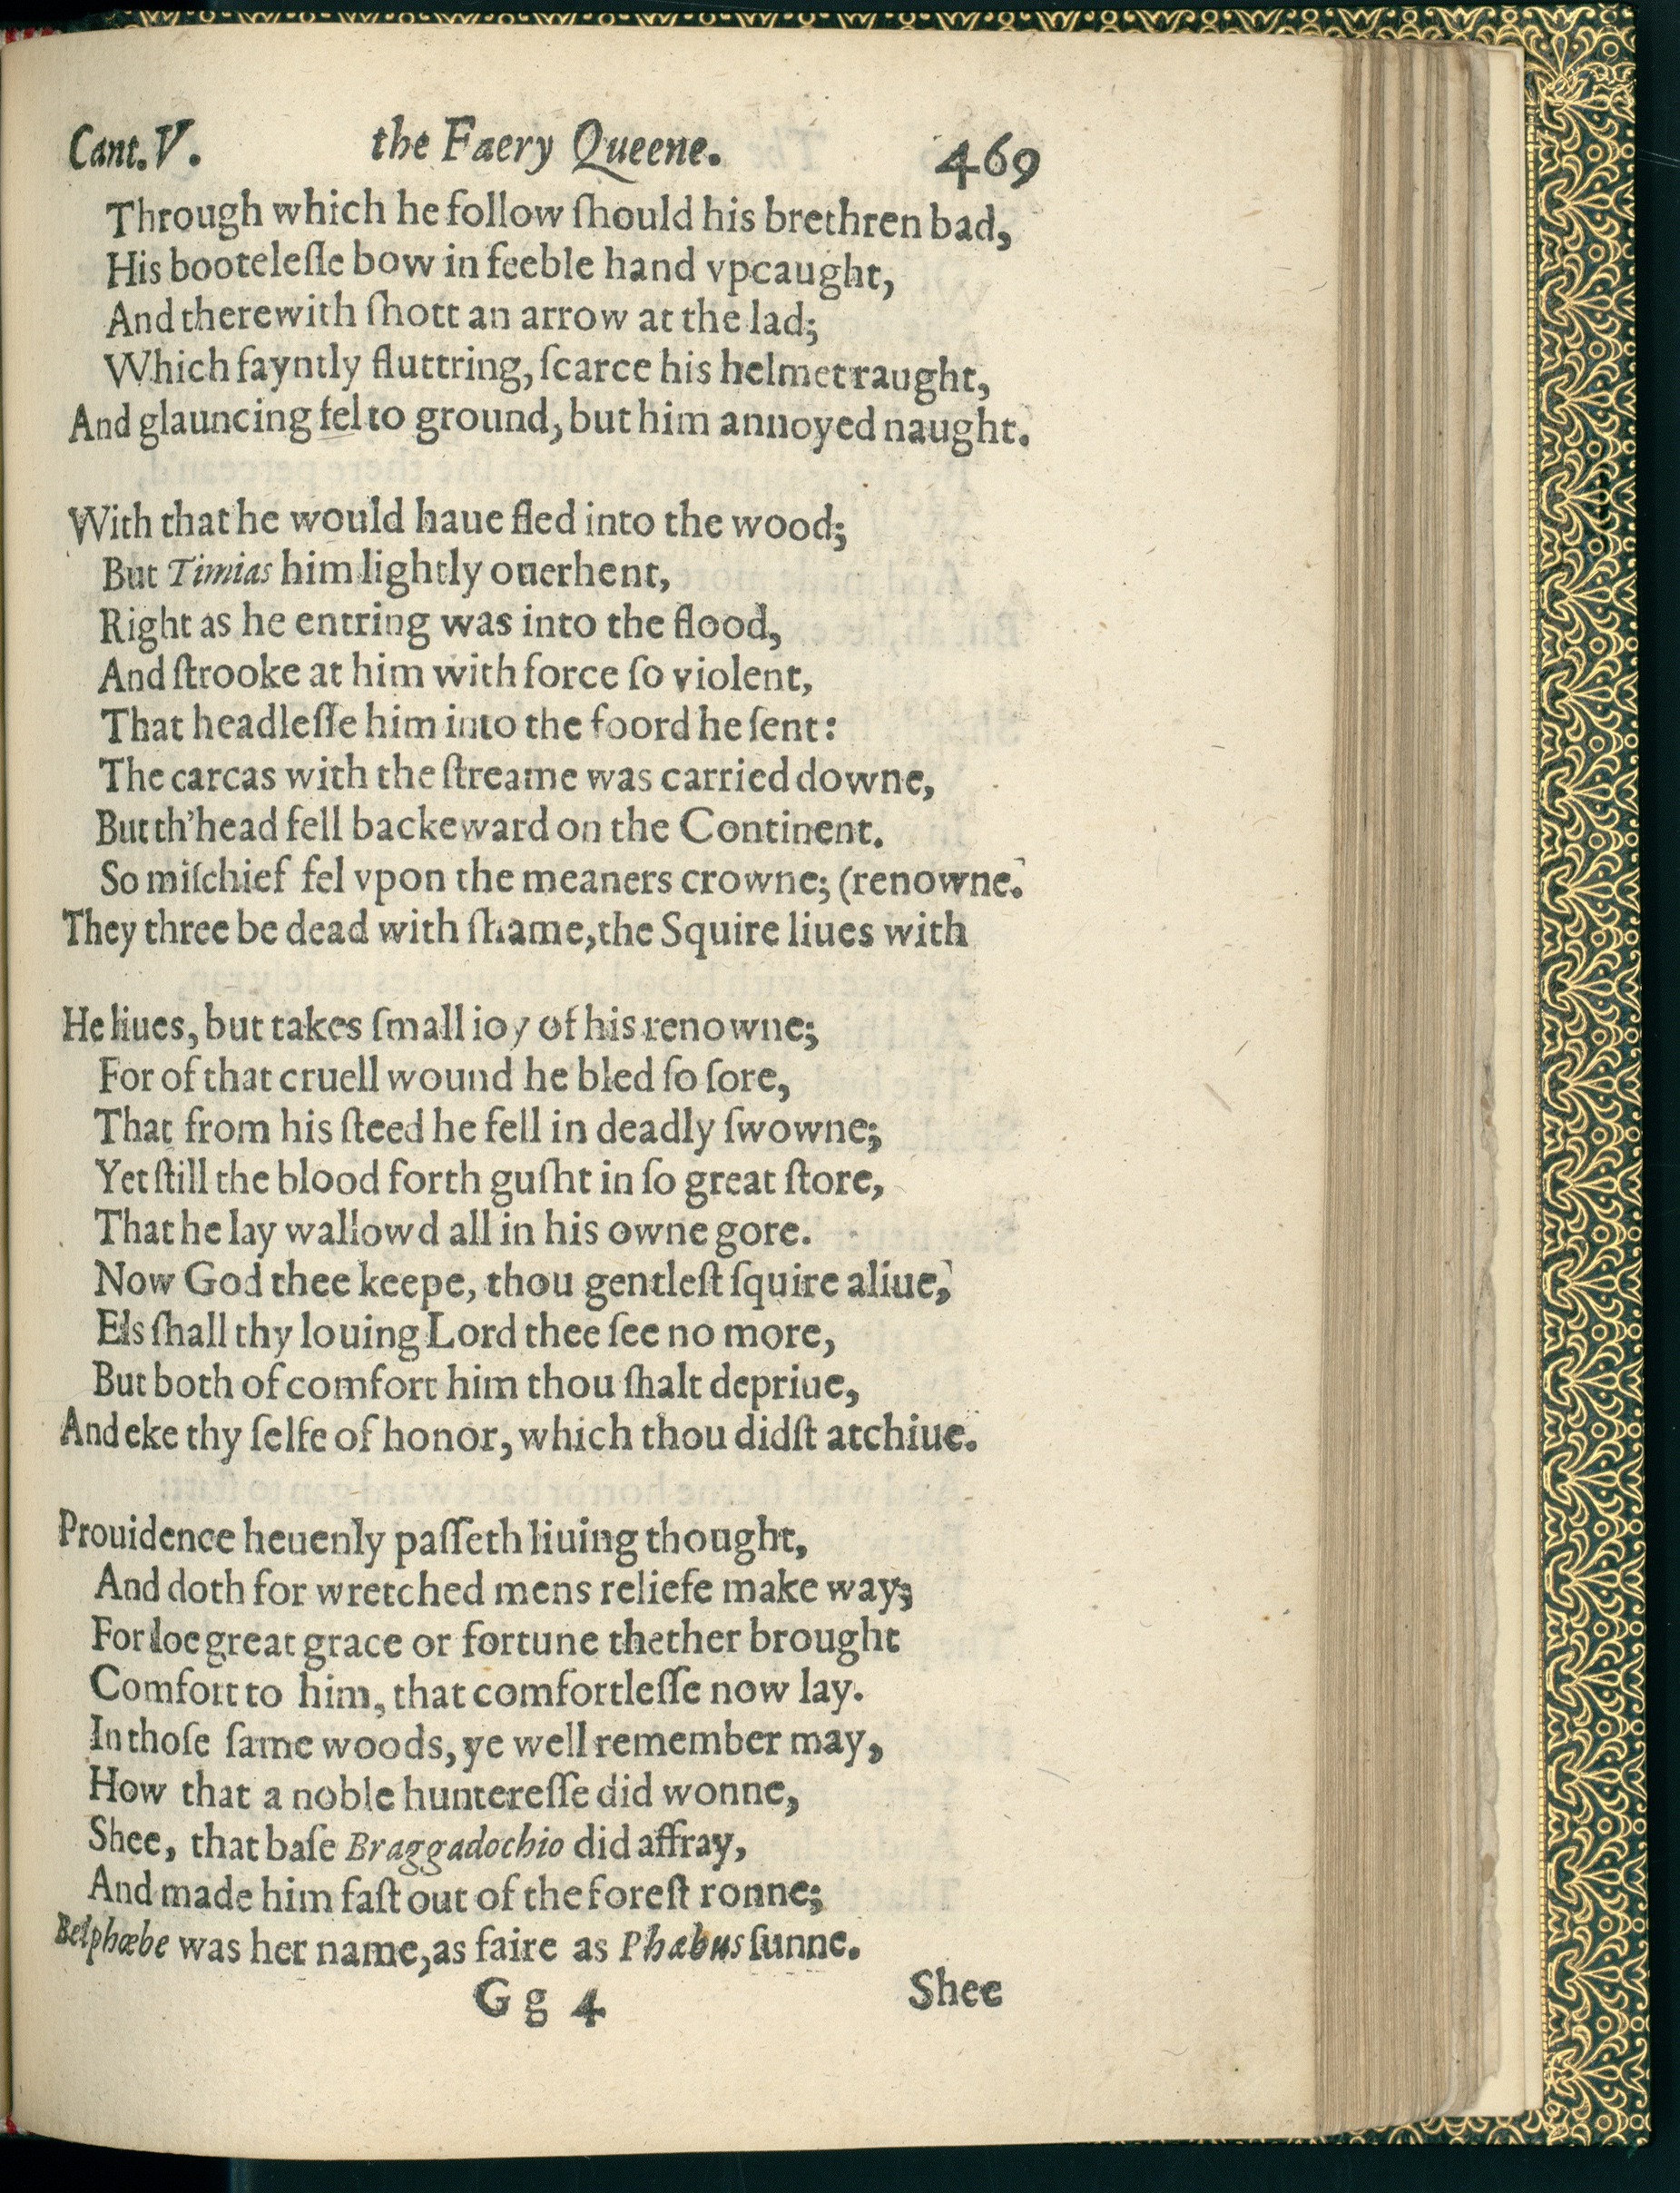 Cant.V. the Faery Queene. 469
Through which he follow ſhould his brethren bad,
His booteleſſe bow in feeble hand vpcaught,
And therewith ſhott an arrow at the lad;
Which fayntly fluttring, ſcarce his helmet raught,
And glauncing fel to ground, but him annoyed naught.
With that he would haue fled into the wood;
But Timias him lightly ouerhent,
Right as he entring was into the flood,
And ſtrooke at him with force ſo violent,
That headleſſe him into the foord he ſent:
The carcas with the ſtreame was carried downe,
But th'head fell backeward on the Continent.
So miſchief fel vpon the meaners crowne; (renowne.
They three be dead with ſhame, the Squire liues with
He liues, but takes ſmall ioy of his renowne;
For of that cruell wound he bled ſo ſore,
That from his ſteed he fell in deadly ſwowne;
Yet ſtill the blood forth guſht in ſo great ſtore,
That he lay wallowd all in his owne gore.
Now God thee keepe, thou gentleſt ſquire aliue,
Els ſhall thy louing Lord thee ſee no more,
But both of comfort him thou ſhalt depriue,
And eke thy ſelfe of honor, which thou didſt atchiue.
Prouidence heuenly paſſeth liuing thought,
And doth for wretched mens reliefe make way;
For loe great grace or fortune thether brought
Comfort to him, that comfortleſſe now lay.
In thoſe ſame woods, ye well remember may,
How that a noble huntereſſe did wonne,
Shee, that baſe Braggadochio did affray,
And made him faſt out of the foreſt ronne;
Belphœbe was her name, as faire as Phæbus ſunne.
Gg 4 Shee